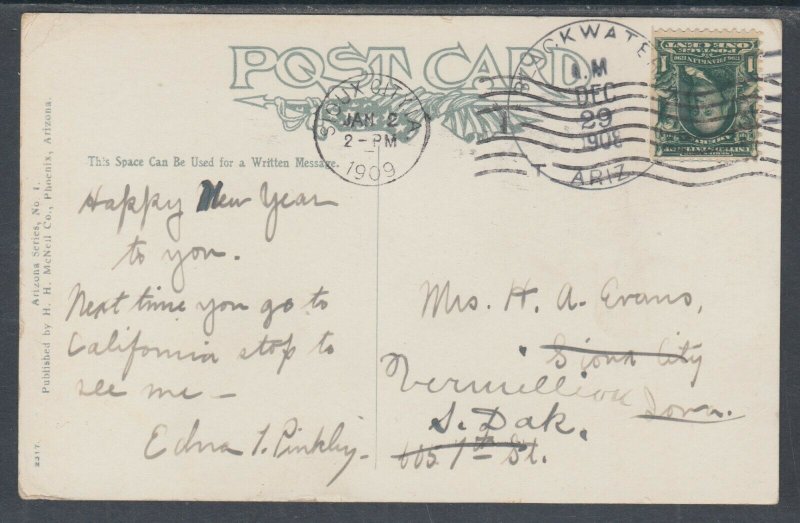 POST CARD
SIOUX CITY, IA
JAN 2
2-PM
1909
BLACKWATER
A.M
DEC
29
1908
ARIZ
ONE CENT
1 1
This Space Can Be Used for a Written Message.
Happy New Year
to you.
Next time you go to
California stop to
see me –
Edna T. Pinkley.
Mrs. H. A. Evans,
Sioux City
Iowa.
Vermillion
S. Dak.
605 7th St.
Arizona Series, No 1.
Published by H. H. McNeil Co., Phoenix, Arizona.
2317.